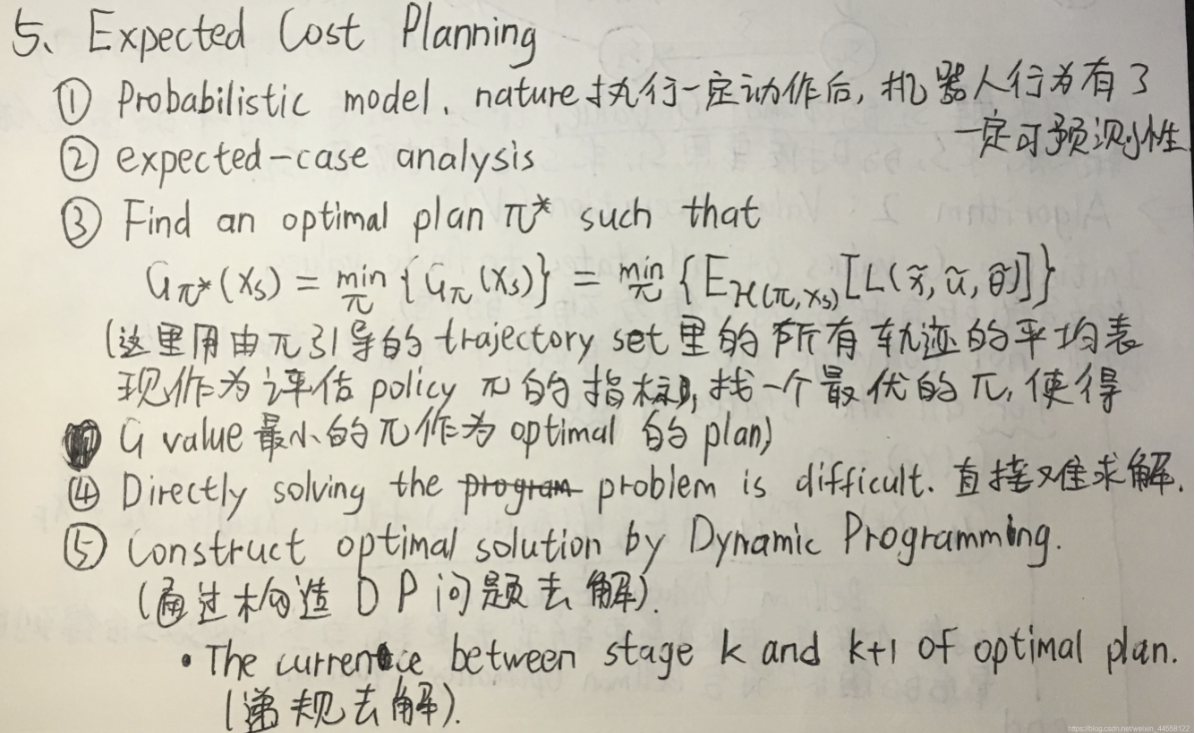 5、Expected Cost Planning
① Probabilistic model. nature执行一定动作后, 机器人行为有了
一定可预测性
② expected-case analysis
③ Find an optimal plan π* such that
G_π*(x_s) = min_π {G_π(x_s)} = min_π {E_H(π,x_s)[L(x̃,ũ,θ̃)]}
(这里用由π引导的trajectory set里的所有轨迹的平均表
现作为评估policy π的指标, 找一个最优的π, 使得
G value最小的π作为optimal的plan)
④ Directly solving the program problem is difficult. 直接难求解.
⑤ Construct optimal solution by Dynamic Programming.
(通过构造DP问题去解).
• The currence between stage k and k+1 of optimal plan.
(递规去解).
https://blog.csdn.net/weixin_44558122